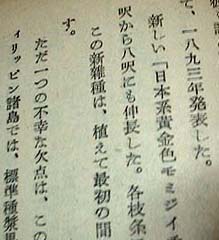 て、一八九三年発表した。
新しい「日本系黄金色モミジイ
呎から八呎にも伸長した。各枝条
この新雑種は、植えて最初の間
す。
ただ一つの不幸な欠点は、この
ィリッピン諸島では、標準種漿果